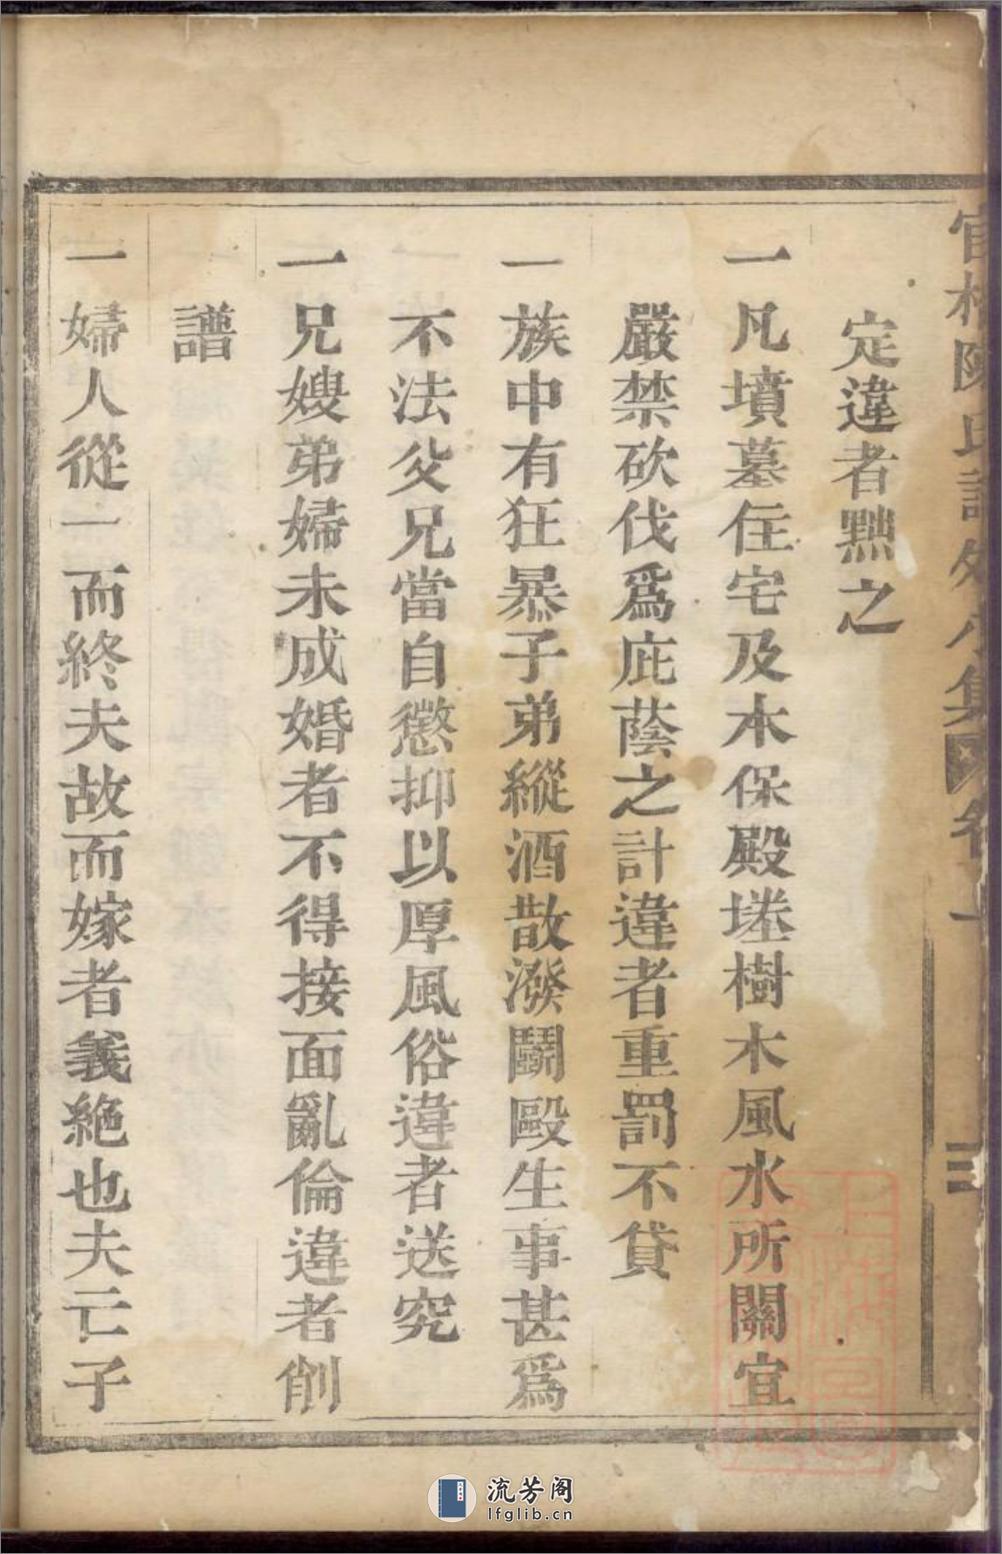 定違者黜之
一凡墳墓住宅及本保殿墶樹木風水所關宜
嚴禁砍伐爲庇蔭之計違者重罰不貸
一族中有狂暴子弟縱酒散潑鬬毆生事甚爲
不法父兄當自懲抑以厚風俗違者送究
一兄嫂弟婦未成婚者不得接面亂倫違者削
譜
一婦人從一而終夫故而嫁者義絶也夫亡子
三
流芳阁
lfglib.cn